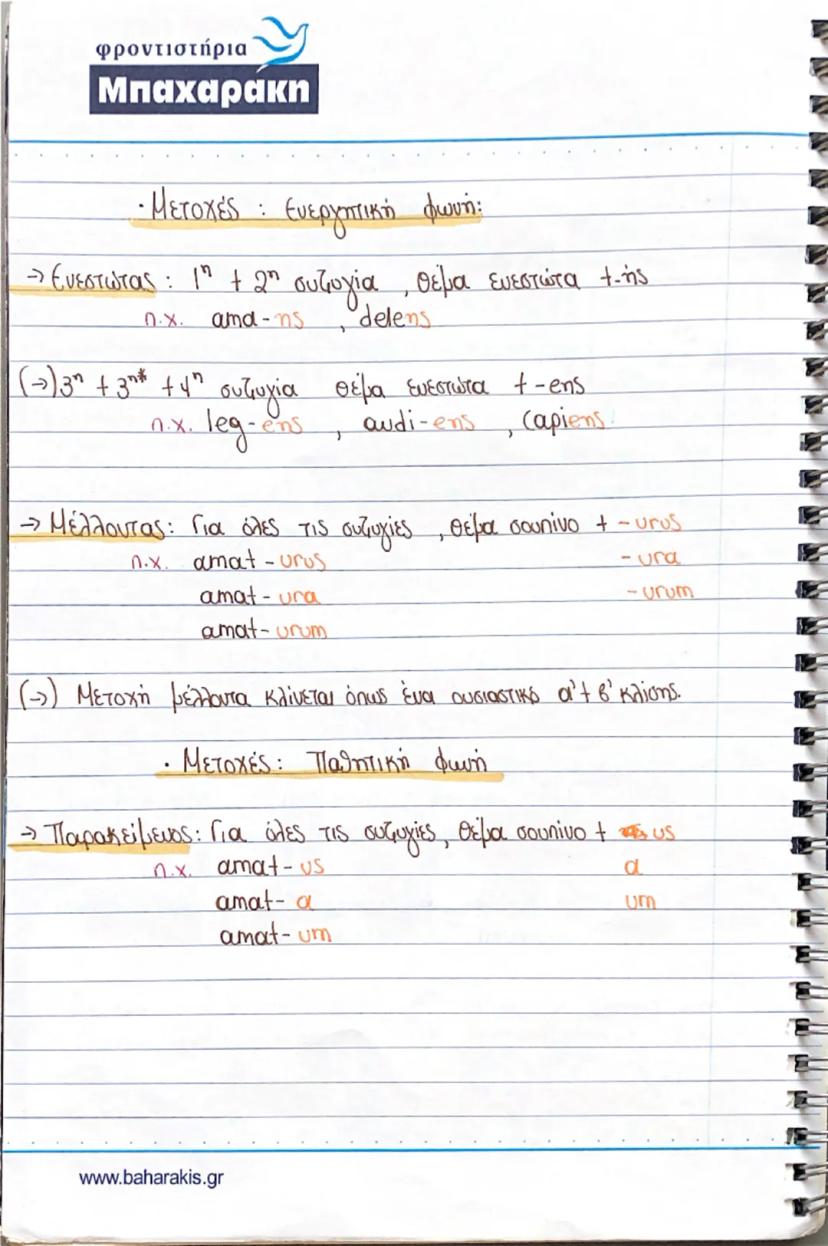 φροντιστήρια
Μπαχαράκη
· Μετοχές : Ενεργητική φωνή:
→ Ενεστώτας : 1η + 2η συζυγία , θέμα ενεστώτα +-ns
π.χ. ama-ns , delens
(→) 3η + 3η* + 4η συζυγία θέμα ενεστώτα +-ens
π.χ. leg-ens , audi-ens , capiens
→ Μέλλοντας: Για όλες τις συζυγίες , θέμα σουπίνο + -urus
π.χ. amat-urus -ura
amat-ura -urum
amat-urum
(→) Μετοχή μέλλοντα κλίνεται όπως ένα ουσιαστικό α'+ β' κλίσης.
· Μετοχές: Παθητική φωνή
→ Παρακείμενος: Για όλες τις συζυγίες, θέμα σουπίνο + us
π.χ. amat-us a
amat-a um
amat-um
www.baharakis.gr